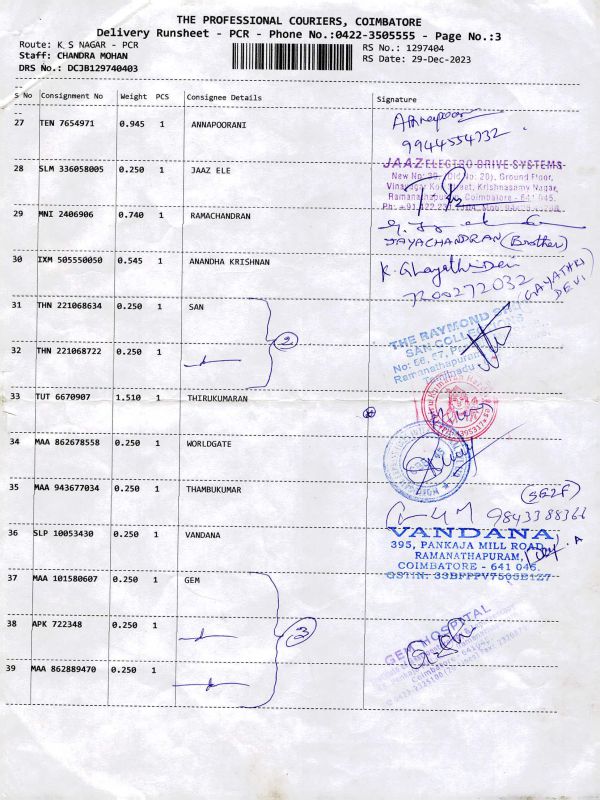 THE PROFESSIONAL COURIERS, COIMBATORE
Delivery Runsheet - PCR - Phone No.:0422-3505555 - Page No.:3
Route: K S NAGAR - PCR
RS No.: 1297404
Staff: CHANDRA MOHAN
RS Date: 29-Dec-2023
DRS No.: DCJB129740403
S No Consignment No Weight PCS Consignee Details Signature
27 TEN 7654971 0.945 1 ANNAPOORANI
Annapoorani
9944554732
28 SLM 336058005 0.250 1 JAAZ ELE
JAAZ ELECTRO DRIVE SYSTEMS
Ground Floor,
Krishnasamy Nagar,
Coimbatore - 641 045.
29 MNI 2406906 0.740 1 RAMACHANDRAN
JAYACHANDRAN (Brother)
30 IXM 505550050 0.545 1 ANANDHA KRISHNAN
K. Ghayathri Devi
7200272032 (GAYATHRI DEVI)
31 THN 221068634 0.250 1 SAN
2
THE RAYMOND
SAN COLLECTIONS
Ramanathapuram
Tamilnadu
32 THN 221068722 0.250 1
33 TUT 6670907 1.510 1 THIRUKUMARAN
34 MAA 862678558 0.250 1 WORLDGATE
35 MAA 943677034 0.250 1 THAMBUKUMAR
9843388366
36 SLP 10053430 0.250 1 VANDANA
VANDANA
395, PANKAJA MILL ROAD,
RAMANATHAPURAM,
COIMBATORE - 641 045.
37 MAA 101580607 0.250 1 GEM
38 APK 722348 0.250 1
3
GEM HOSPITAL
39 MAA 862889470 0.250 1